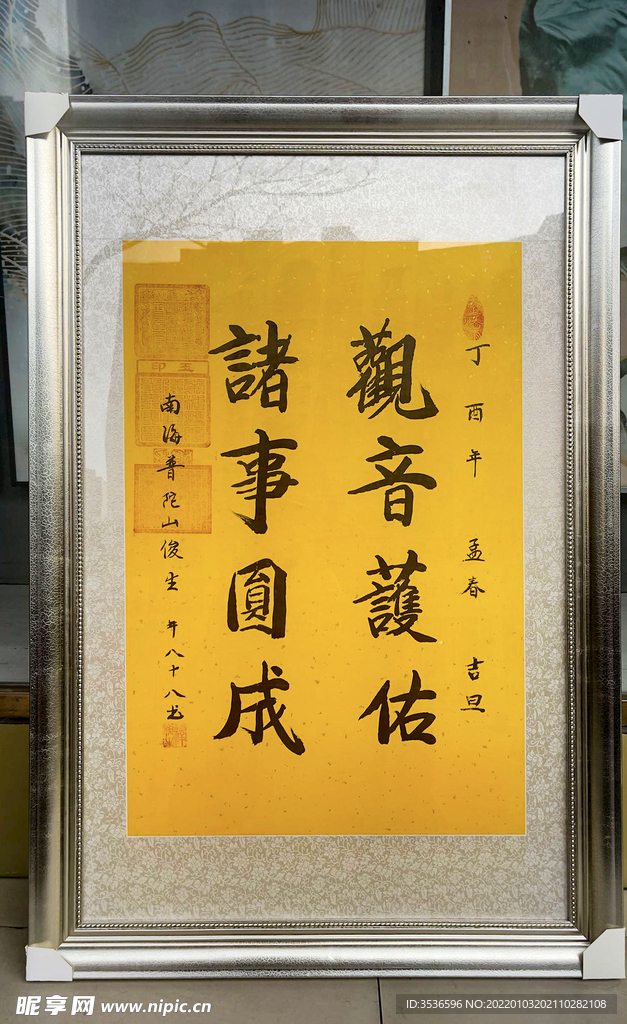 丁酉年 孟春 吉旦
觀音護佑
諸事圓成
南海普陀山俊生 年八十八书
玉印
昵享网 www.nipic.cn
ID:3536596 NO:20220103202110282108